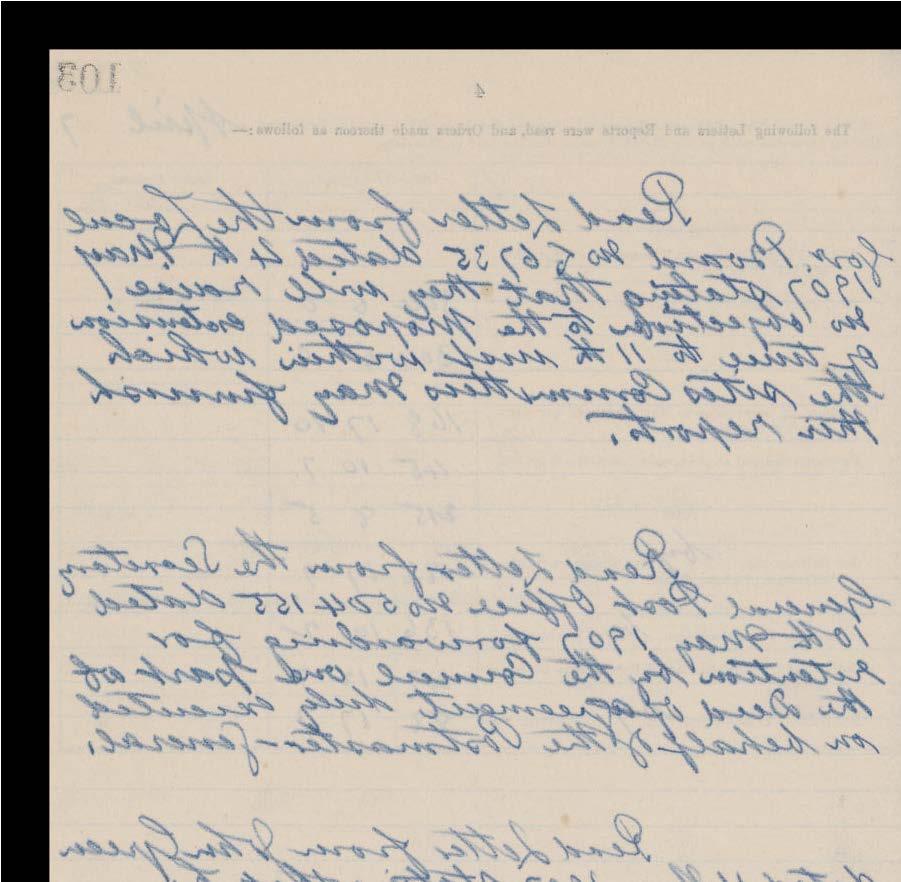 103
4
The following Letters and Reports were read, and Orders made thereon as follows:—
April 7
Read Letter from the Local
Gov. Board No 56735 dated 4th May
1907 stating that they will raise
no objection to the proposed extension
of time to 11th inst within which
the sites Committees may furnish
their reports.
168 17 10
45 10 7
215 9 5
Read Letter from the Secretary
General Post Office No 504155 dated
10th May 1907 forwarding for
retention by the Council one part of
the Deed of Agreement duly executed
on behalf of the Postmaster-General.
Read Letter from John Green